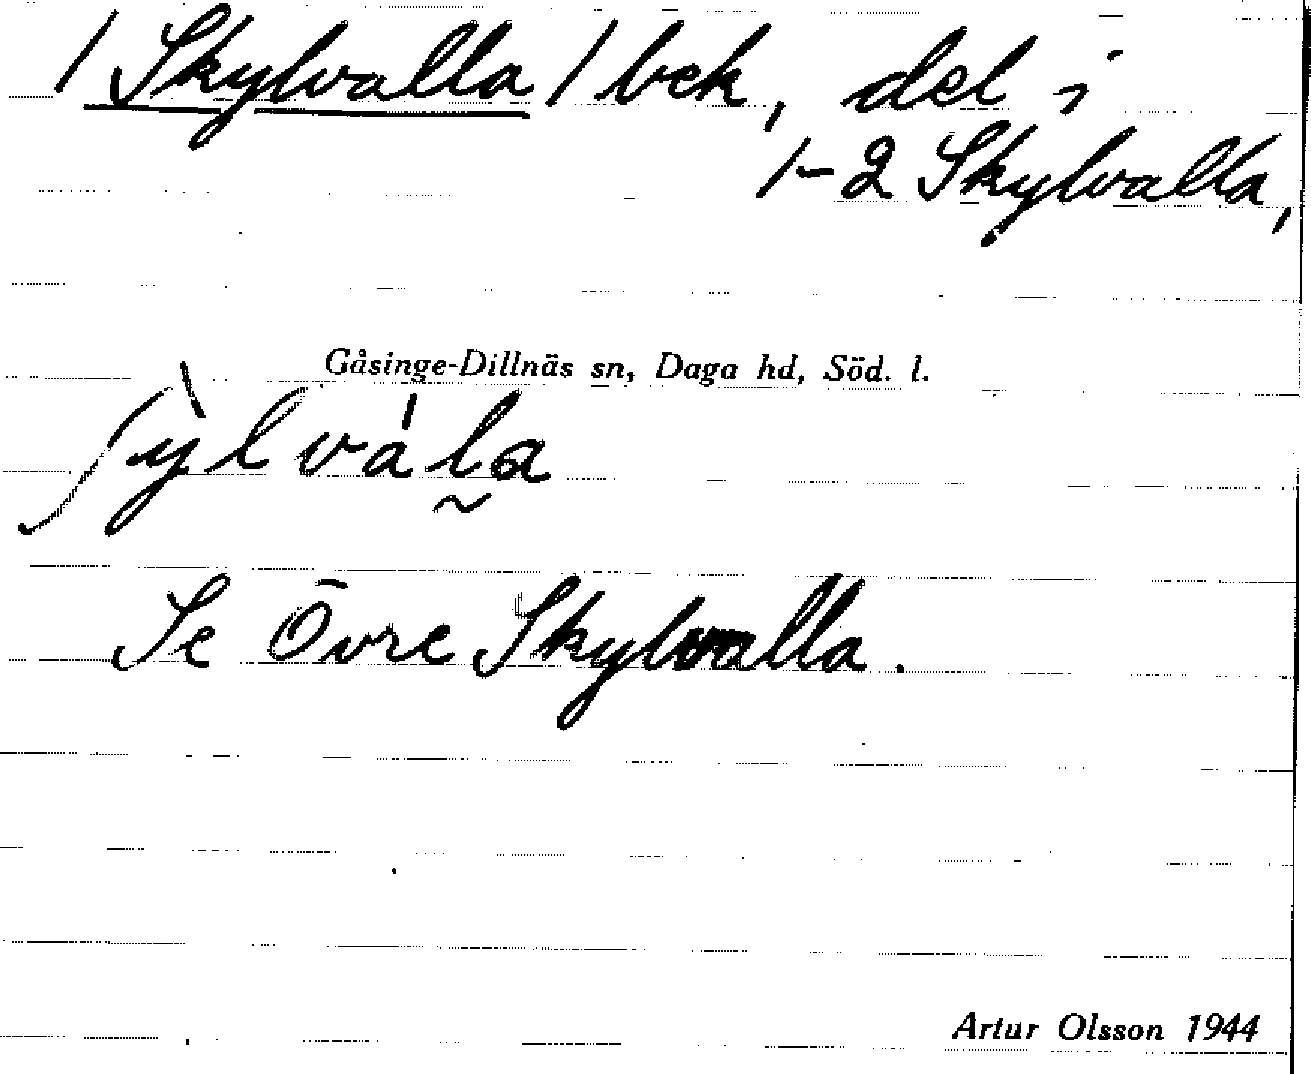 /Skylvalla/ bek, del i
1-2 Skylvalla,
Gåsinge-Dillnäs sn, Daga hd, Söd. l.
ʃỳlvála̰
Se Övre Skylvalla.
Artur Olsson 1944